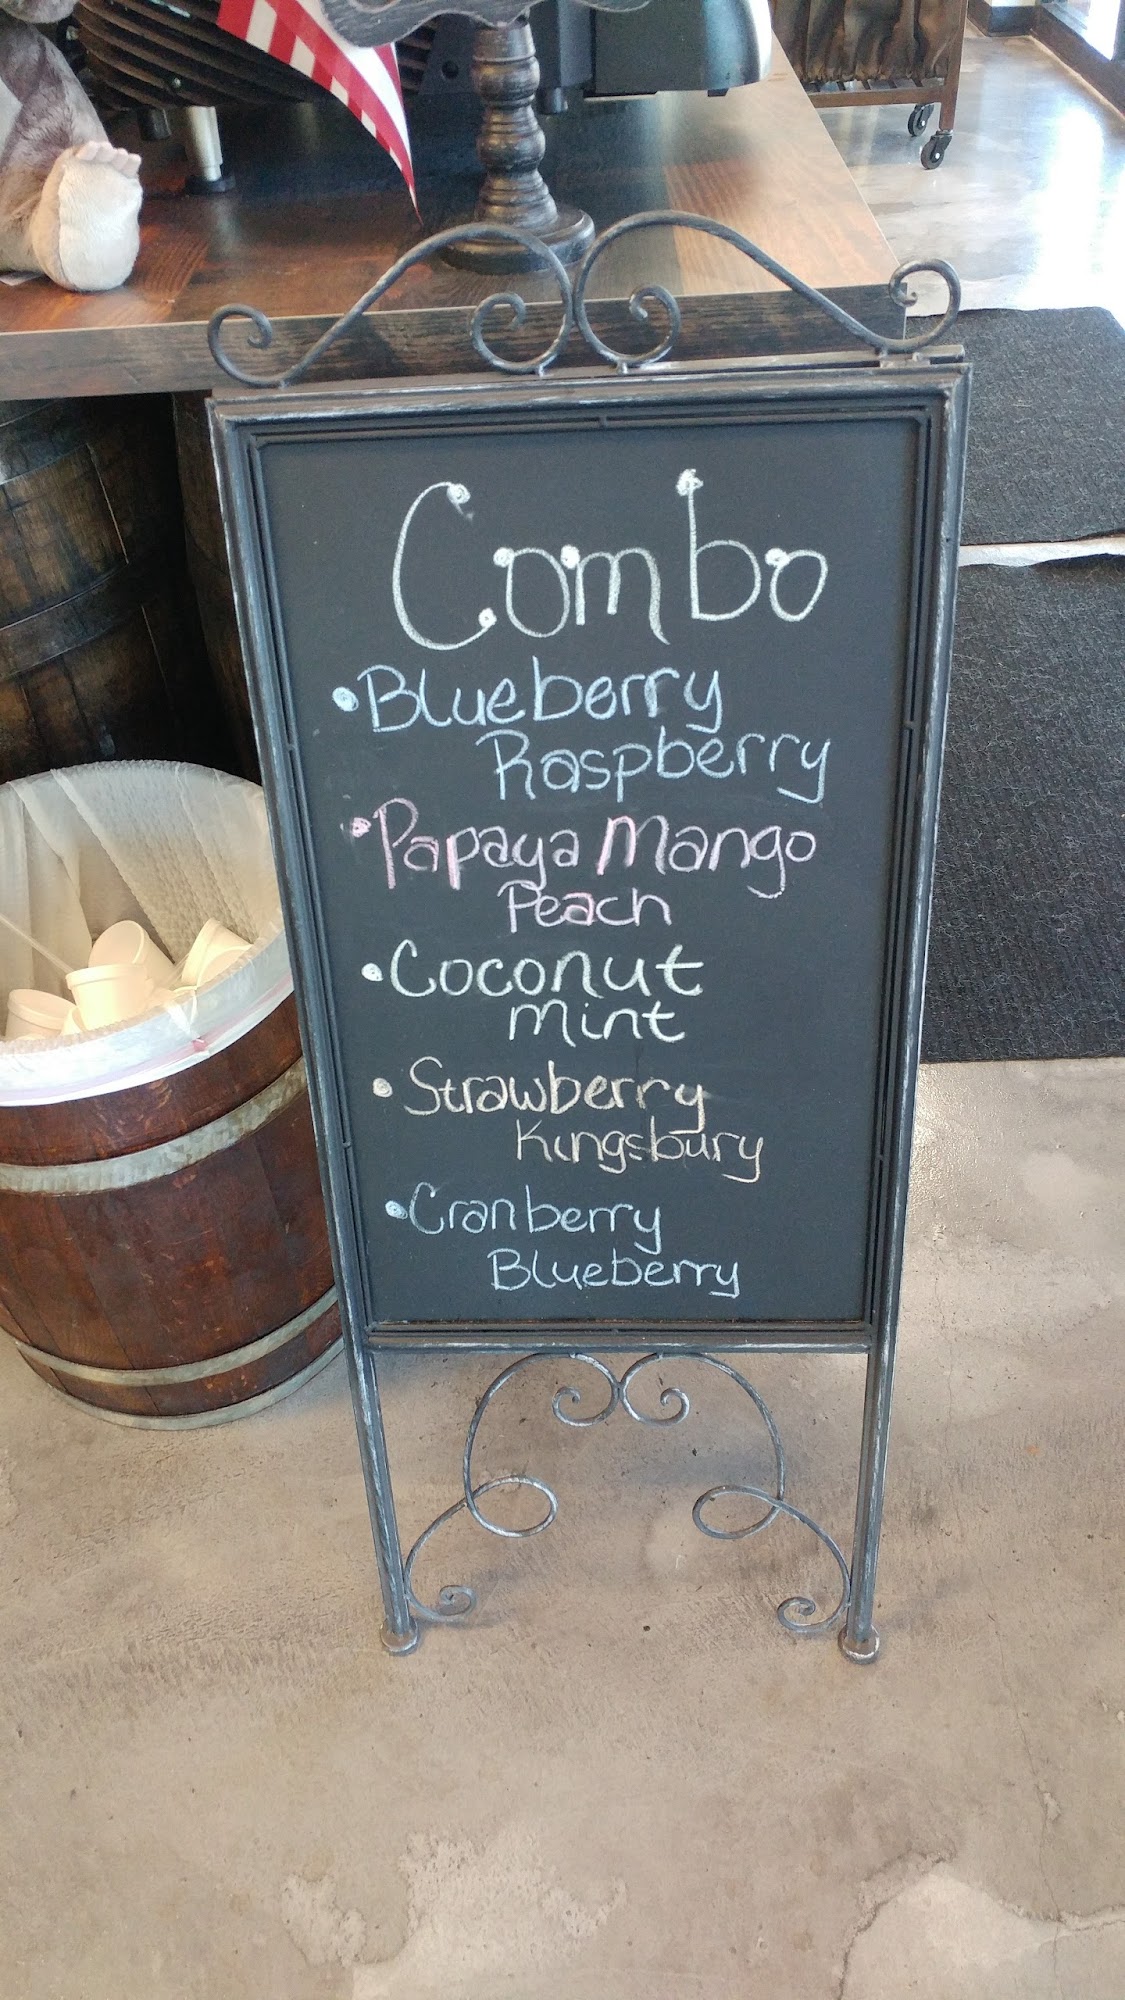 Combo
• Blueberry
Raspberry
• Papaya Mango
Peach
• Coconut
Mint
• Strawberry
Kingsbury
• Cranberry
Blueberry